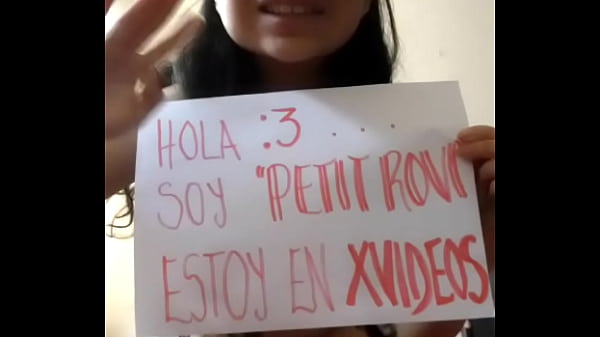 HOLA :3 ...
SOY "PETIT ROVI"
ESTOY EN XVIDEOS